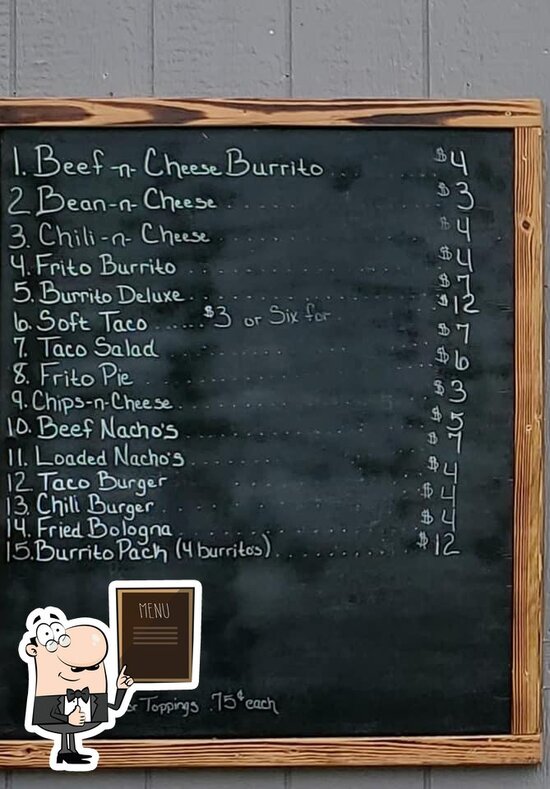 1. Beef -n- Cheese Burrito ..... $4
2 Bean-n-Cheese ..... $3
3. Chili-n- Cheese ..... $4
4. Frito Burrito ..... $4
5. Burrito Deluxe ..... $7
6. Soft Taco ...... $3 or Six for $12
7. Taco Salad ..... $7
8. Frito Pie ..... $6
9. Chips-n-Cheese ..... $3
10. Beef Nacho's ..... $5
11. Loaded Nacho's ..... $7
12 Taco Burger ..... $4
13 Chili Burger ..... $4
14. Fried Bologna ..... $4
15. Burrito Pack (4 burritos) ..... $12
MENU
Toppings .75¢ each